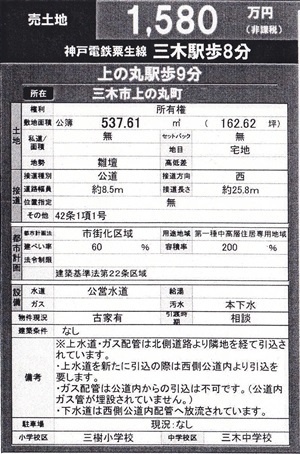 売土地 1,580 万円
(非課税)
神戸電鉄粟生線 三木駅歩8分
上の丸駅歩9分
所在 三木市上の丸町
土地 権利 所有権
敷地面積 公簿 537.61 ㎡ ( 162.62 坪)
私道/面積 無 セットバック 無
地目 宅地
地勢 雛壇 高低差
接道 接道種別 公道 接道方向 西
道路幅員 約8.5m 接道長さ 約25.8m
位置指定 無
その他 42条1項1号
都市計画 都市計画法 市街化区域 用途地域 第一種中高層住居専用地域
建ぺい率 60 % 容積率 200 %
法令制限
建築基準法第22条区域
設備 水道 公営水道 給湯
ガス 汚水 本下水
物件現況 古家有 引渡時期 相談
建築条件 なし
備考
※上水道・ガス配管は北側道路より隣地を経て引込されています。
・上水道を新たに引込の際は西側公道内より引込を要します。
・ガス配管は公道内からの引込は不可です。(公道内ガス管が埋設されていません。)
・下水道は西側公道内配管へ放流されています。
駐車場 現況:なし
小学校区 三樹小学校 中学校区 三木中学校